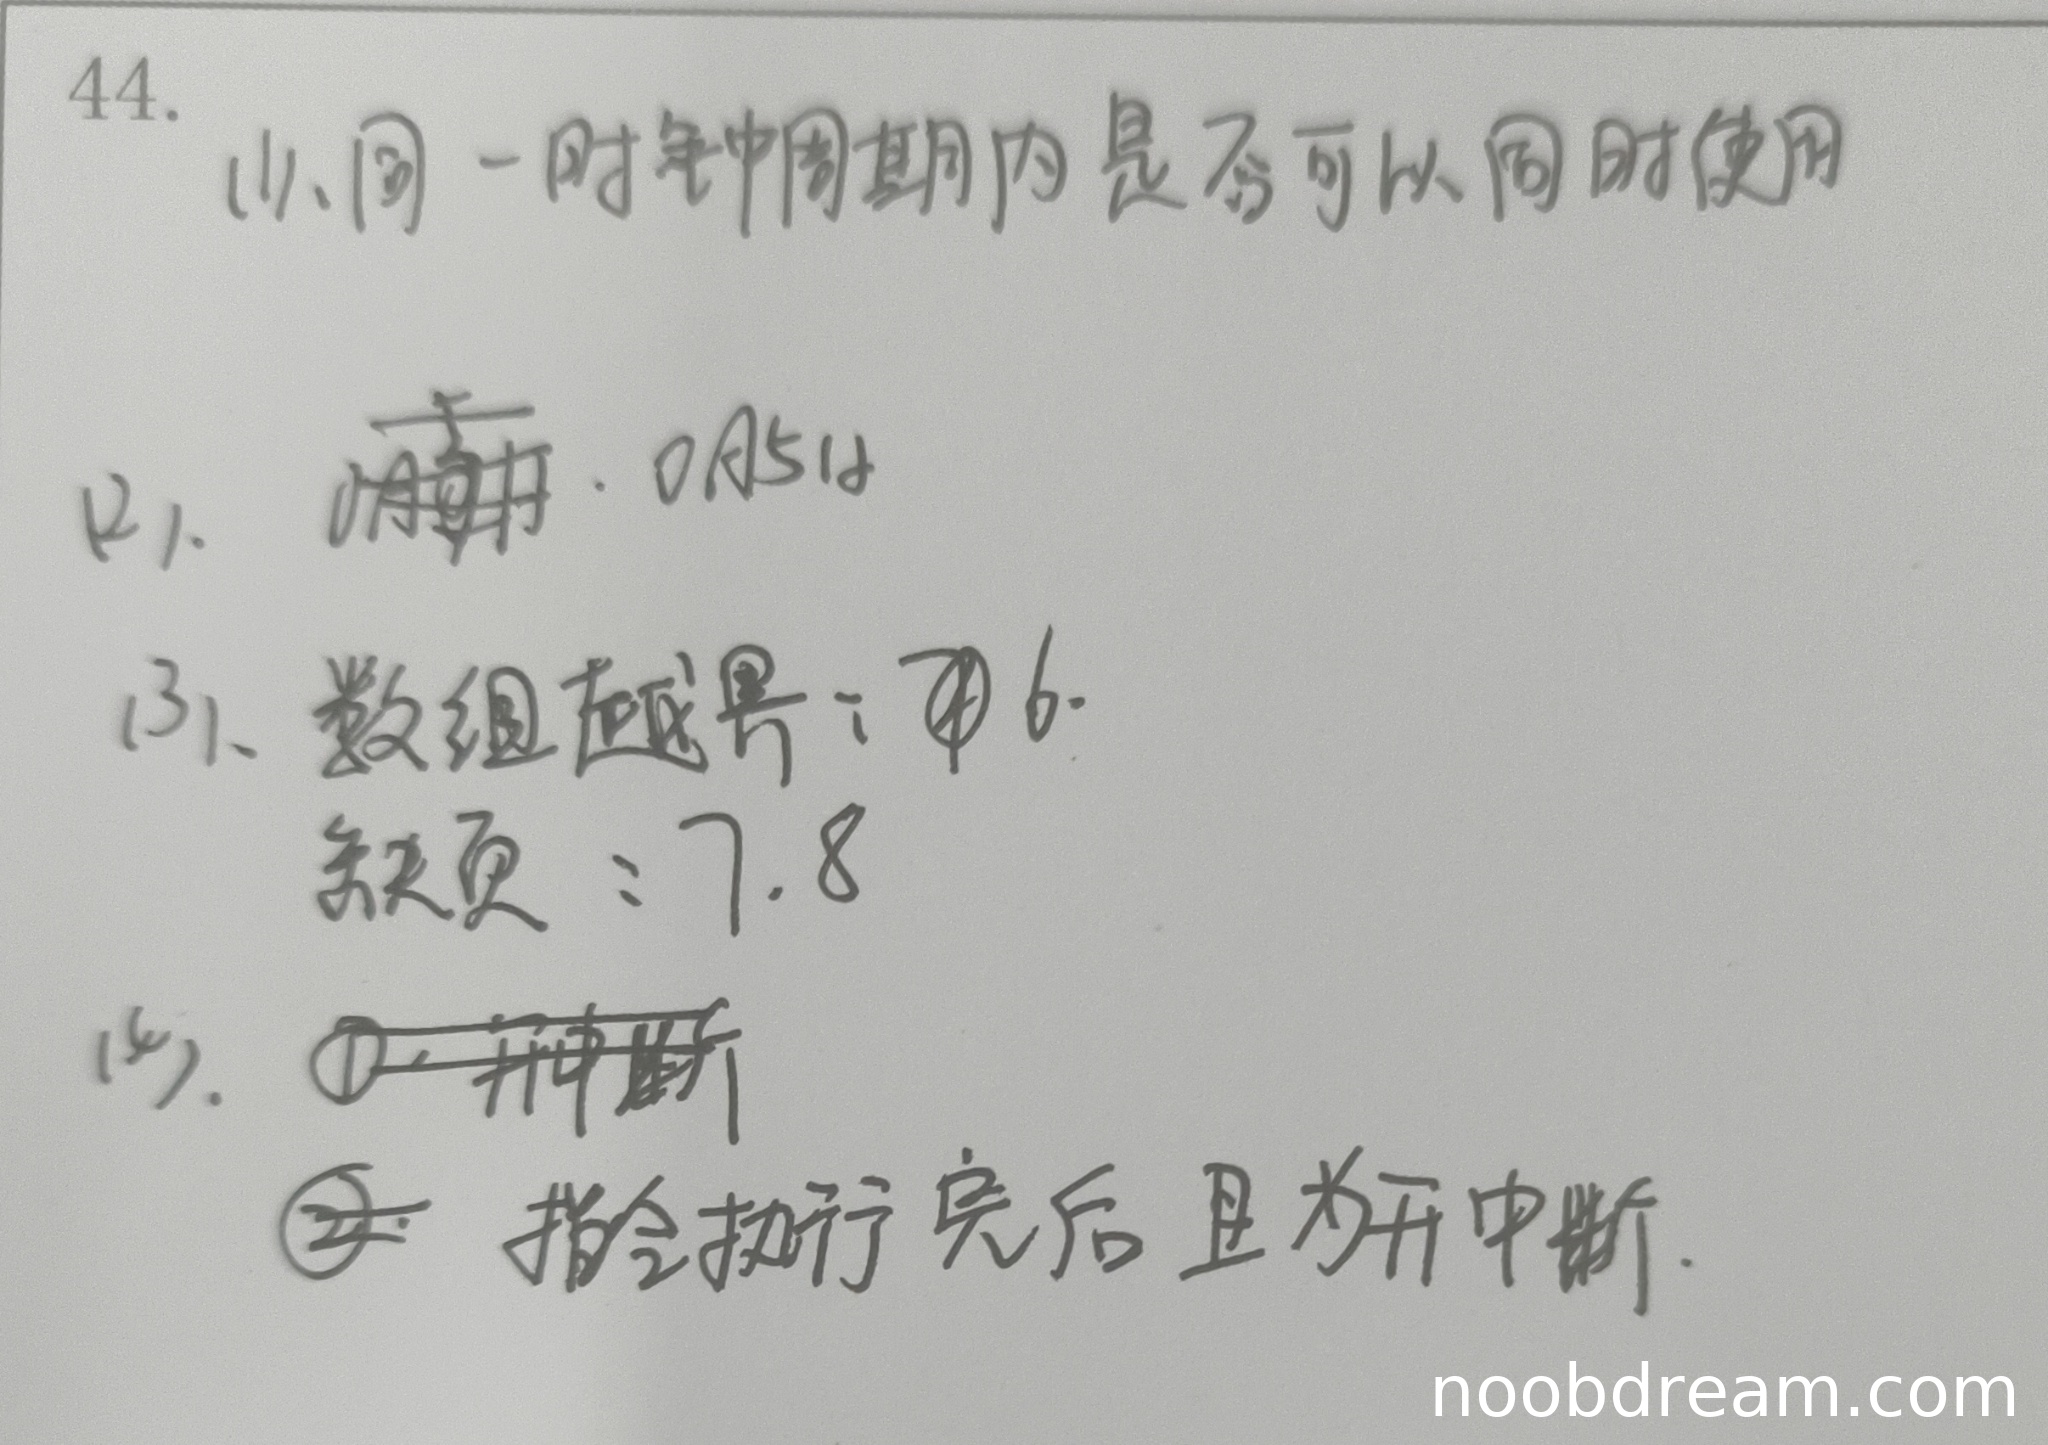 44.
(1)、同一时钟周期内是否可以同时使用
(2). 0A51H
(3)、数组越界：6.
缺页：7.8
(4).
指令执行完后且为开中断.
noobdream.com